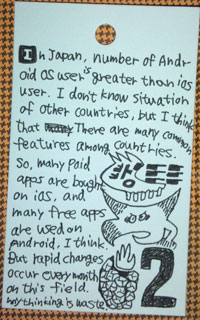 In Japan, number of Andr-
oid OS user is greater than ios
user. I don't know situation
of other countries, but I think
that There are many common
features among countries.
So, many Paid
apps are bought
on ios, and
many free apps
are used on
Android, I think.
But rapid changes
occur every month
on this field.
my thinking is waste
2